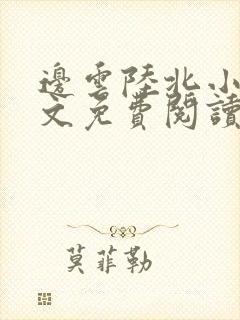 邊雲陸北小
文免費閱讀
莫菲勒